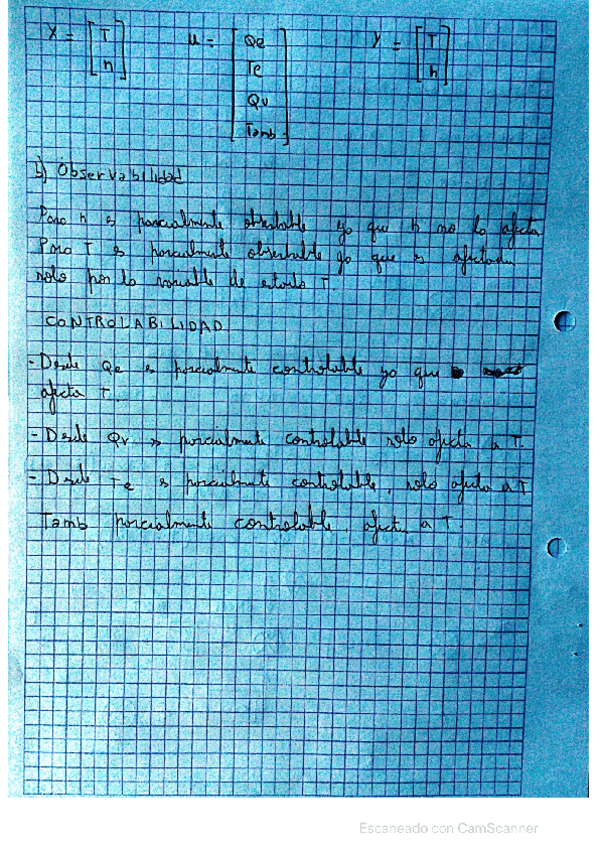 X = [T h] u = [Qe Te Qv Tamb] Y = [T h]
b) Observabilidad
Para h es parcialmente observable ya que h no la afecta
Para T es parcialmente observable ya que es afectada
solo por la variable de estado T.
CONTROLABILIDAD
- Desde Qe es parcialmente controlable ya que
afecta T.
- Desde Qv es parcialmente controlable solo afecta a T.
- Desde Te es parcialmente controlable, solo afecta a T
Tamb parcialmente controlable, afecta a T.
Escaneado con CamScanner